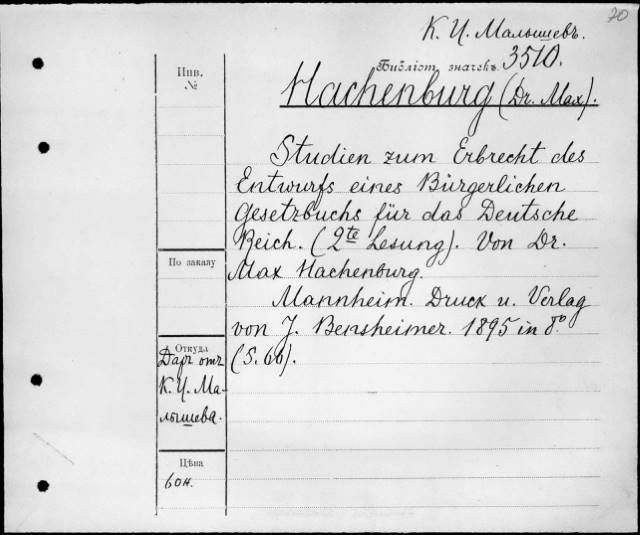 70
К. И. Малышевъ.
Библіот. значекъ. 3510.
Инв.
№
Hachenburg (Dr. Max).
Studien zum Erbrecht des
Entwurfs eines Bürgerlichen
Gesetzbuchs für das Deutsche
Reich. (2te Lesung). Von Dr.
По заказу
Max Hachenburg.
Mannheim. Druck u. Verlag
von J. Bensheimer. 1895 in 8.º
Откуда
Даръ отъ
(S. 66).
К. И. Ма-
лышева.
Цѣна
60 н.